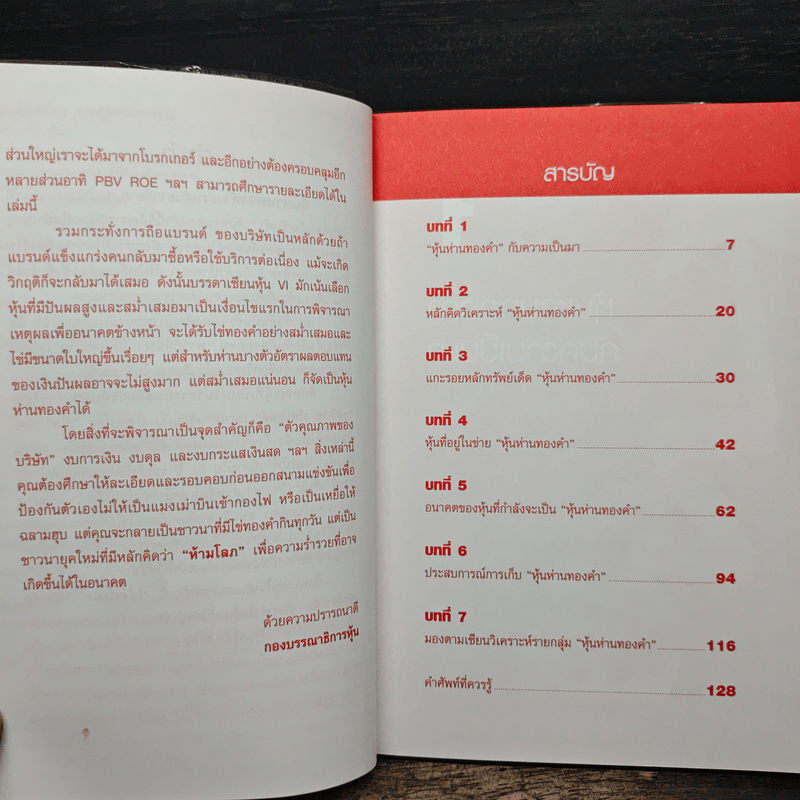 ส่วนใหญ่เราจะได้มาจากโบรกเกอร์ และอีกอย่างต้องครอบคลุมอีก
หลายส่วนอาทิ PBV ROE ฯลฯ สามารถศึกษารายละเอียดได้ใน
เล่มนี้
รวมกระทั่งการถือแบรนด์ ของบริษัทเป็นหลักด้วยถ้า
แบรนด์แข็งแกร่งคนกลับมาซื้อหรือใช้บริการต่อเนื่อง แม้จะเกิด
วิกฤติก็จะกลับมาได้เสมอ ดังนั้นบรรดาเซียนหุ้น VI มักเน้นเลือก
หุ้นที่มีปันผลสูงและสม่ำเสมอมาเป็นเงื่อนไขแรกในการพิจารณา
เหตุผลเพื่ออนาคตข้างหน้า จะได้รับไข่ทองคำอย่างสม่ำเสมอและ
ไข่มีขนาดใบใหญ่ขึ้นเรื่อยๆ แต่สำหรับห่านบางตัวอัตราผลตอบแทน
ของเงินปันผลอาจจะไม่สูงมาก แต่สม่ำเสมอแน่นอน ก็จัดเป็นหุ้น
ห่านทองคำได้
โดยสิ่งที่จะพิจารณาเป็นจุดสำคัญก็คือ “ตัวคุณภาพของ
บริษัท” งบการเงิน งบดุล และงบกระแสเงินสด ฯลฯ สิ่งเหล่านี้
คุณต้องศึกษาให้ละเอียดและรอบคอบก่อนออกสนามแข่งขันเพื่อ
ป้องกันตัวเองไม่ให้เป็นแมงเม่าบินเข้ากองไฟ หรือเป็นเหยื่อให้
ฉลามฮุบ แต่คุณจะกลายเป็นชาวนาที่มีไข่ทองคำกินทุกวัน แต่เป็น
ชาวนายุคใหม่ที่มีหลักคิดว่า “ห้ามโลภ” เพื่อความร่ำรวยที่อาจ
เกิดขึ้นได้ในอนาคต
ด้วยความปรารถนาดี
กองบรรณาธิการหุ้น
สารบัญ
บทที่ 1
“หุ้นห่านทองคำ” กับความเป็นมา 7
บทที่ 2
หลักคิดวิเคราะห์ “หุ้นห่านทองคำ” 20
บทที่ 3
แกะรอยหลักทรัพย์เด็ด “หุ้นห่านทองคำ” 30
บทที่ 4
หุ้นที่อยู่ในข่าย “หุ้นห่านทองคำ” 42
บทที่ 5
อนาคตของหุ้นที่กำลังจะเป็น “หุ้นห่านทองคำ” 62
บทที่ 6
ประสบการณ์การเก็บ “หุ้นห่านทองคำ” 94
บทที่ 7
มองตามเซียนวิเคราะห์รายกลุ่ม “หุ้นห่านทองคำ” 116
คำศัพท์ที่ควรรู้ 128